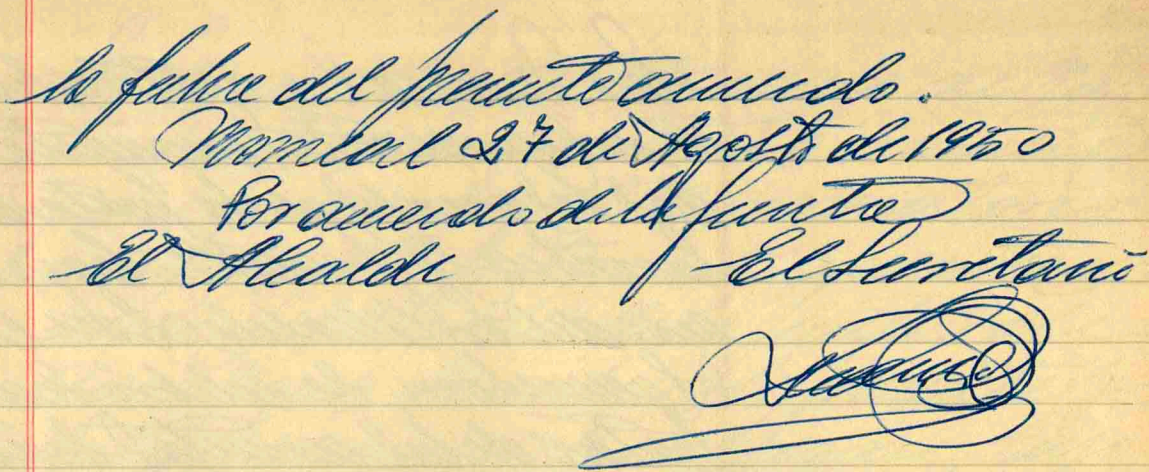 la fecha del presente acuerdo.
Monreal 27 de Agosto de 1950
Por acuerdo de la Junta
El Alcalde El Secretario